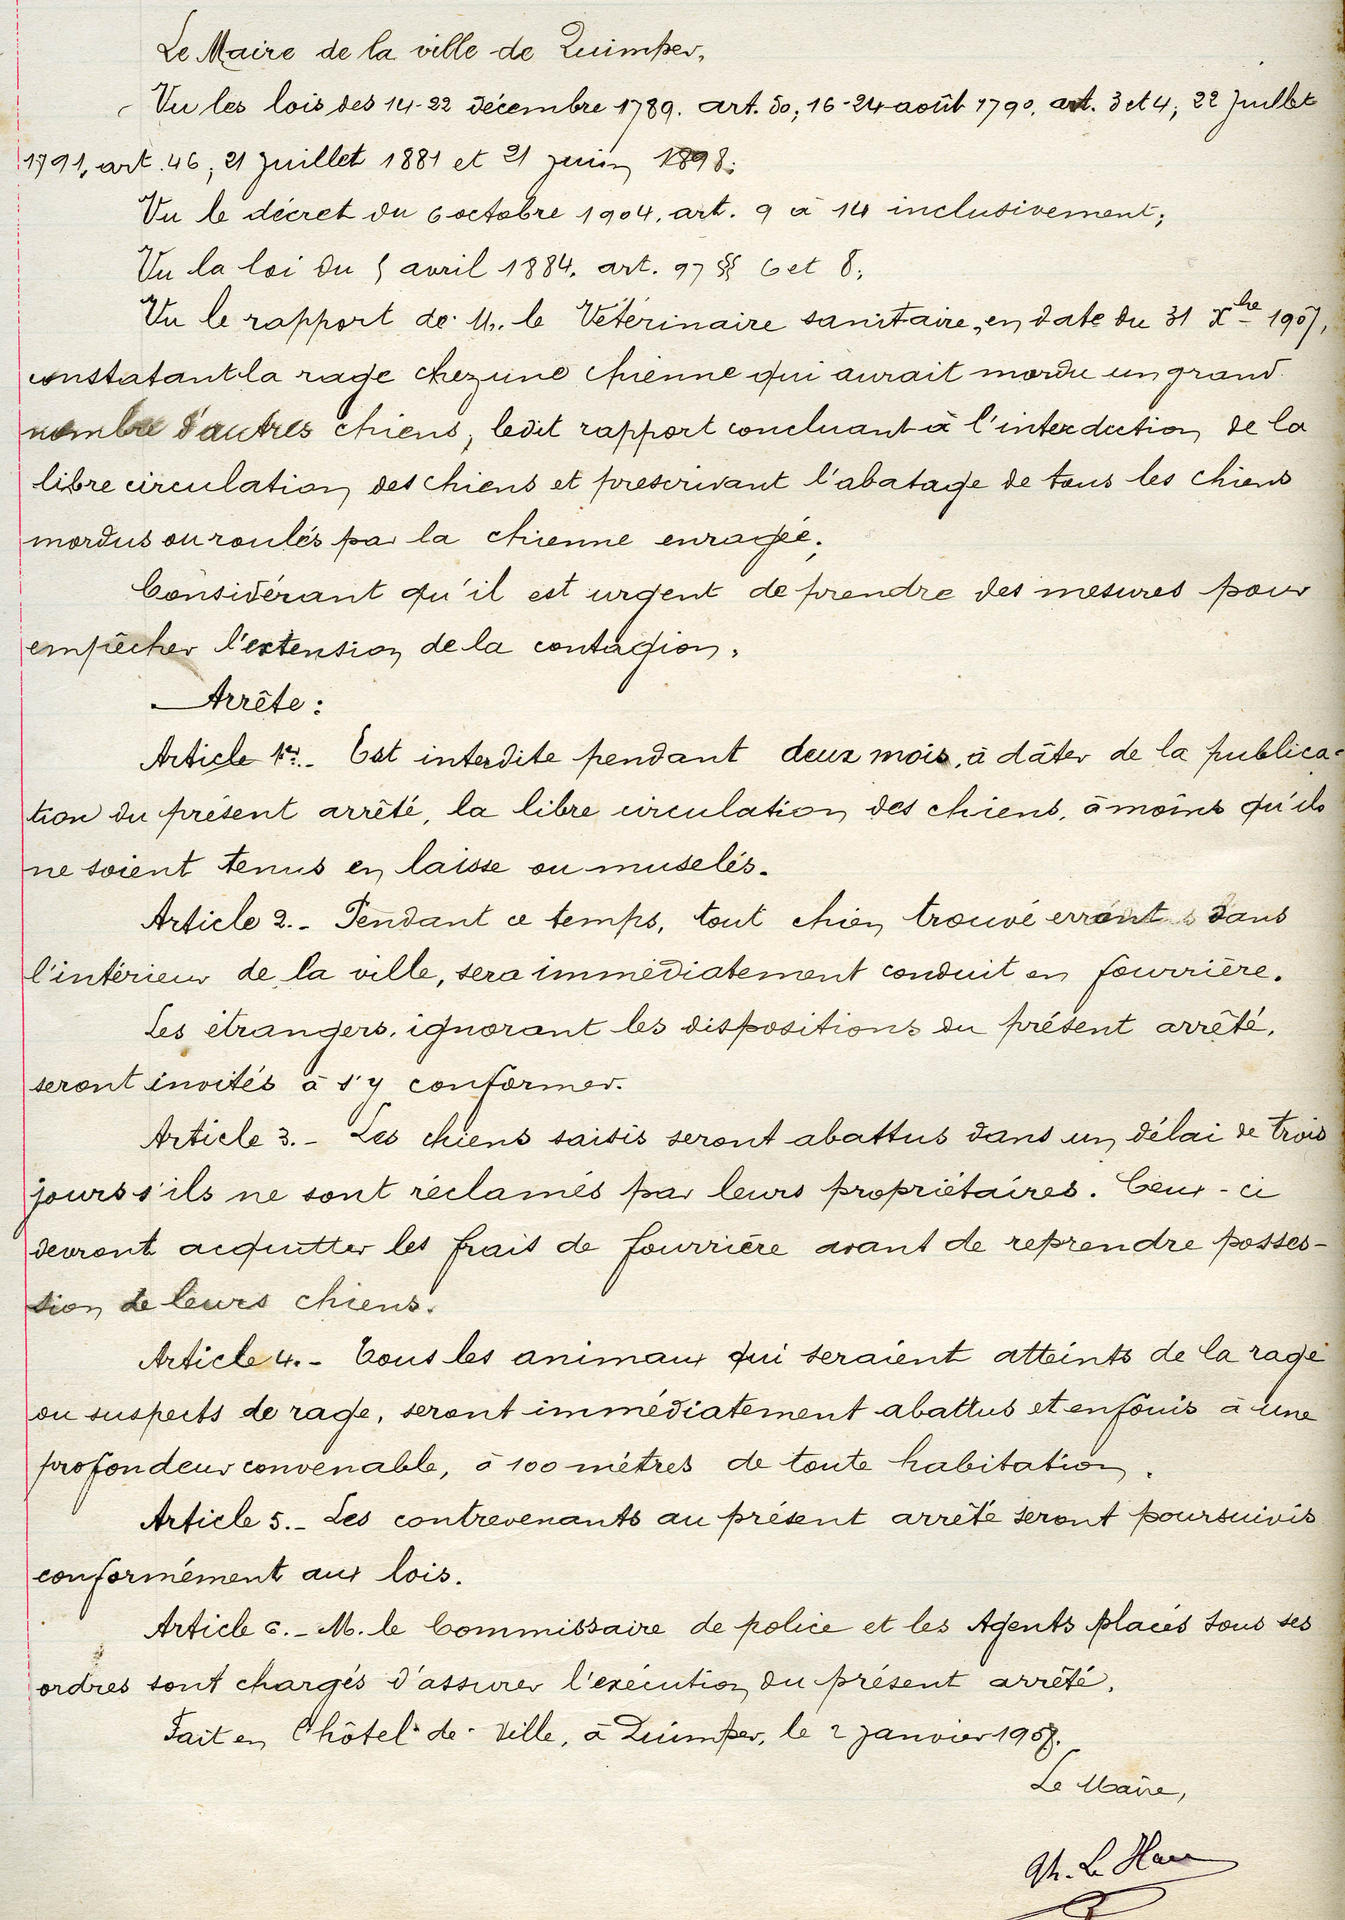 Le Maire de la ville de Quimper,
Vu les lois des 14-22 décembre 1789. art. 50; 16-24 août 1790. art. 3 et 4; 22 Juillet
1791, art. 46; 21 Juillet 1881 et 21 juin 1898;
Vu le décret du 6 octobre 1904, art. 9 à 14 inclusivement;
Vu la loi du 5 avril 1884. art. 97 §§ 6 et 8;
Vu le rapport de M. le Vétérinaire sanitaire, en date du 31 Xbre 1907,
constatant la rage chez une chienne qui aurait mordu un grand
nombre d'autres chiens, ledit rapport concluant à l'interdiction de la
libre circulation des chiens et prescrivant l'abatage de tous les chiens
mordus ou roulés par la chienne enragée;
Considérant qu'il est urgent de prendre des mesures pour
empêcher l'extension de la contagion,
Arrête:
Article 1er.- Est interdite pendant deux mois, à dâter de la publica-
tion du présent arrêté, la libre circulation des chiens, à moins qu'ils
ne soient tenus en laisse ou muselés.
Article 2.- Pendant ce temps, tout chien trouvé errant dans
l'intérieur de la ville, sera immédiatement conduit en fourrière.
Les étrangers, ignorant les dispositions du présent arrêté,
seront invités à s'y conformer.
Article 3.- Les chiens saisis seront abattus dans un délai de trois
jours s'ils ne sont réclamés par leurs propriétaires. Ceux-ci
devront acquitter les frais de fourrière avant de reprendre posses-
sion de leurs chiens.
Article 4.- Tous les animaux qui seraient atteints de la rage
ou suspects de rage, seront immédiatement abattus et enfouis à une
profondeur convenable, à 100 mètres de toute habitation.
Article 5.- Les contrevenants au présent arrêté seront poursuivis
conformément aux lois.
Article 6.- M. le Commissaire de police et les Agents placés sous ses
ordres sont chargés d'assurer l'exécution du présent arrêté.
Fait en l'hôtel-de-Ville, à Quimper, le 2 Janvier 1908.
Le Maire,
Th. Le Hars